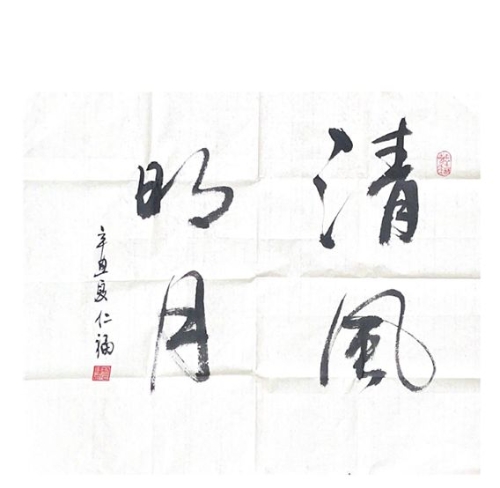 清風
明月
辛丑夏仁福